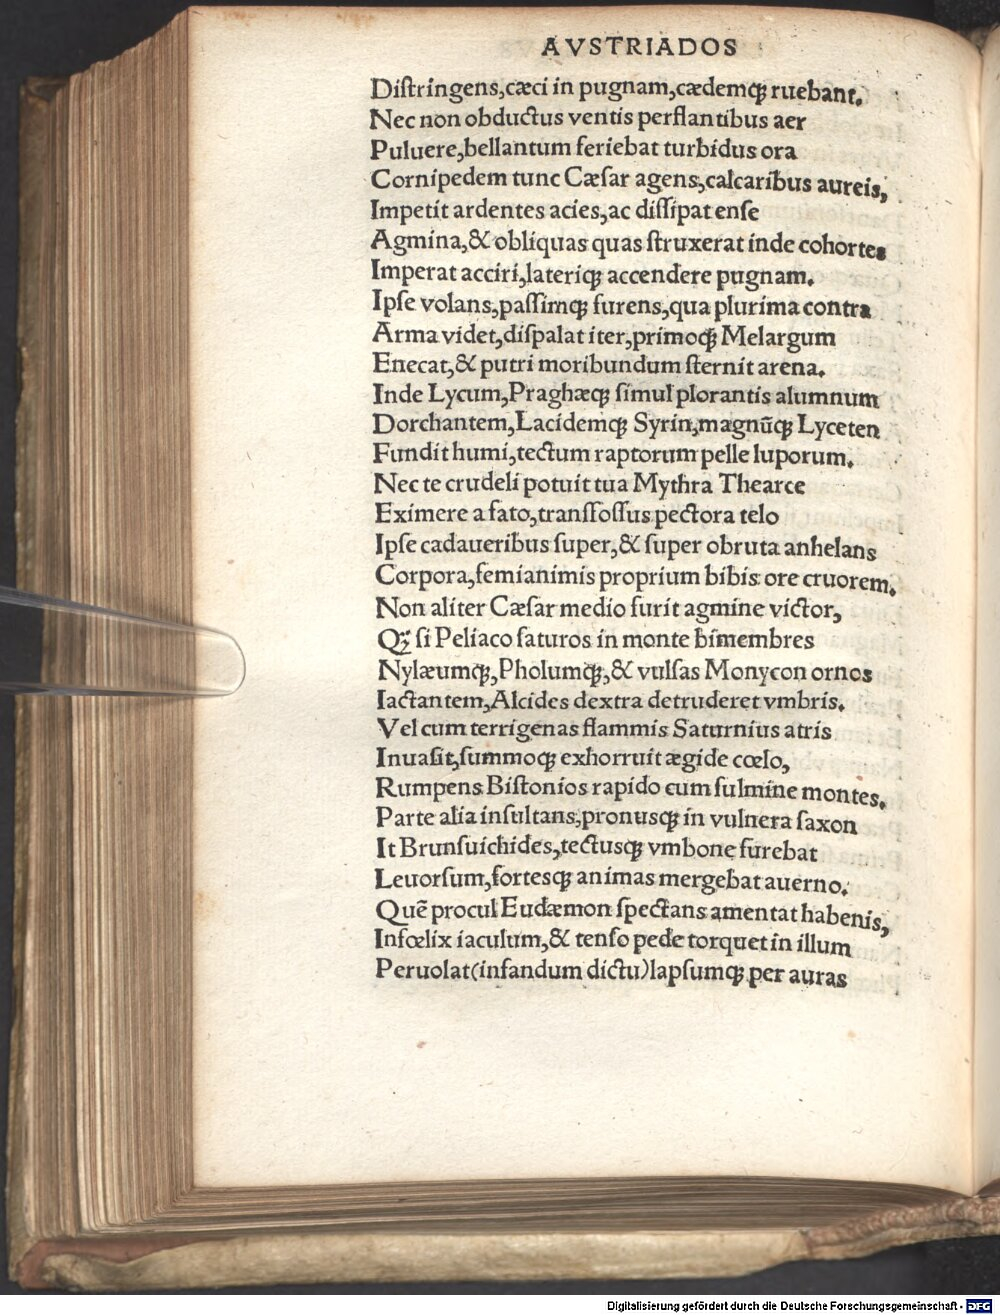 AVSTRIADOS
Diſtringens,cæci in pugnam,cædemqꝫ ruebant.
Nec non obductus ventis perflantibus aer
Puluere,bellantum feriebat turbidus ora
Cornipedem tunc Cæſar agens,calcaribus aureis,
Impetit ardentes acies,ac diſſipat enſe
Agmina,& obliquas quas ſtruxerat inde cohortes
Imperat acciri,lateriqꝫ accendere pugnam.
Ipſe volans,paſſimqꝫ furens,qua plurima contra
Arma videt,diſpalat iter,primoqꝫ Melargum
Enecat,& putri moribundum ſternit arena.
Inde Lycum,Praghæqꝫ ſimul plorantis alumnum
Dorchantem,Lacidemqꝫ Syrin,magnūqꝫ Lyceten
Fundit humi,tectum raptorum pelle luporum.
Nec te crudeli potuit tua Mythra Thearce
Eximere a fato,tranſſoſſus pectora telo
Ipſe cadaueribus ſuper,& ſuper obruta anhelans
Corpora,ſemianimis proprium bibis ore cruorem.
Non aliter Cæſar medio furit agmine victor,
Qꝫ ſi Peliaco ſaturos in monte bimembres
Nylæumqꝫ,Pholumqꝫ,& vulſas Monycon ornos
Iactantem,Alcides dextra detruderet vmbris.
Vel cum terrigenas flammis Saturnius atris
Inuaſit,ſummoqꝫ exhorruit ægide cœlo,
Rumpens Biſtonios rapido cum fulmine montes.
Parte alia inſultans,pronusqꝫ in vulnera ſaxon
It Brunſuichides,tectusqꝫ vmbone furebat
Leuorſum,fortesqꝫ animas mergebat auerno.
Quē procul Eudæmon ſpectans amentat habenis,
Infœlix iaculum,& tenſo pede torquet in illum
Peruolat(infandum dictu)lapſumqꝫ per auras
Digitalisierung gefördert durch die Deutsche Forschungsgemeinschaft - DFG